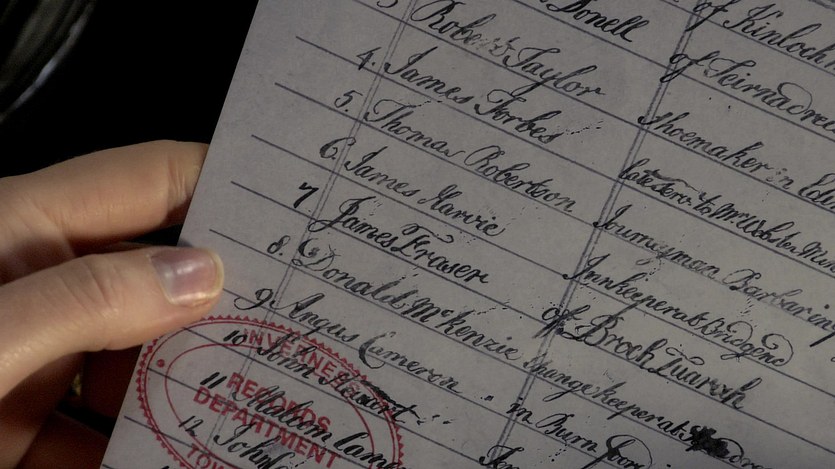 Donell of Kinloch
3 Robert Taylor of Leirnadre
4. James Forbes Shoemaker in Edin
5. Thomas Robertson
6 James Jarvie Journeyman Barbar in
7 James Fraser Innkeeper at Bridgend
8. Donald McKenzie of Broch Tuarach
9 Angus Cameron Change keeper at
10 John Stewart in Burn
11 Malcom Came
12 John
INVERNESS
RECORDS
DEPARTMENT
TOW